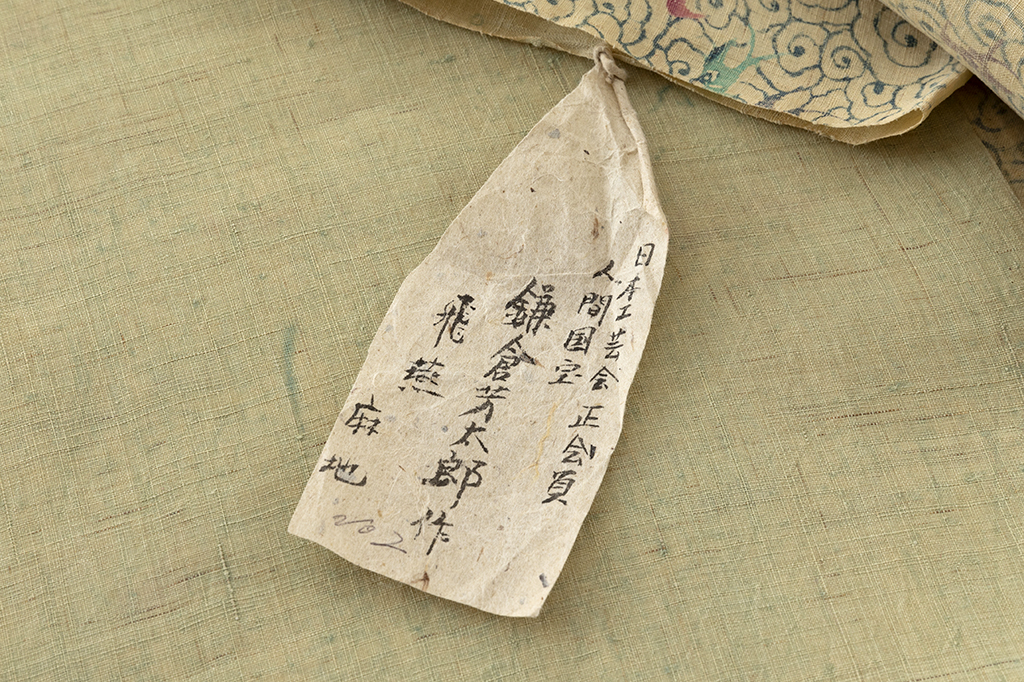 日本工芸会 正会員
人間国宝
鎌倉芳太郎作
飛燕
麻地
202